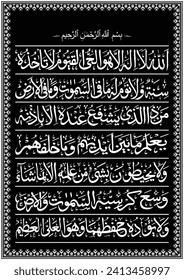 بسم الله الرحمن الرحيم
الله لا إله إلا هو الحي القيوم لا تأخذه
سنة ولا نوم له ما في السموت وما في الأرض
من ذا الذي يشفع عنده إلا بإذنه
يعلم ما بين أيديهم وما خلفهم
ولا يحيطون بشيء من علمه إلا بما شاء
وسع كرسيه السموت والأرض
ولا يؤده حفظهما وهو العلي العظيم
shutterstock
IMAGE ID: 2413458997
www.shutterstock.com